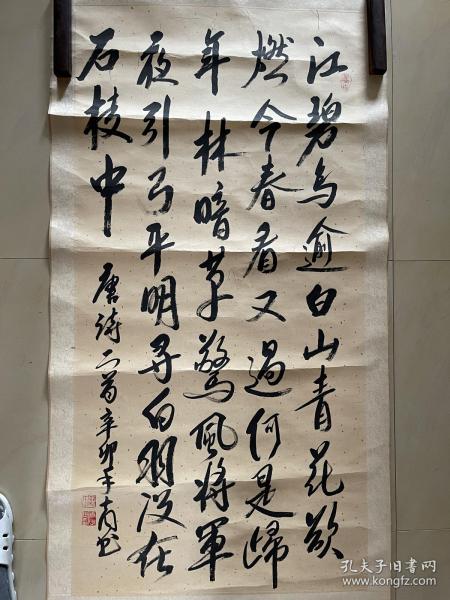 江碧鸟逾白山青花欲
燃今春看又過何是歸
年林暗草驚風將軍
夜引弓平明尋白羽没在
石棱中
唐詩二首辛卯年 书
孔夫子旧书网
www.kongfz.com